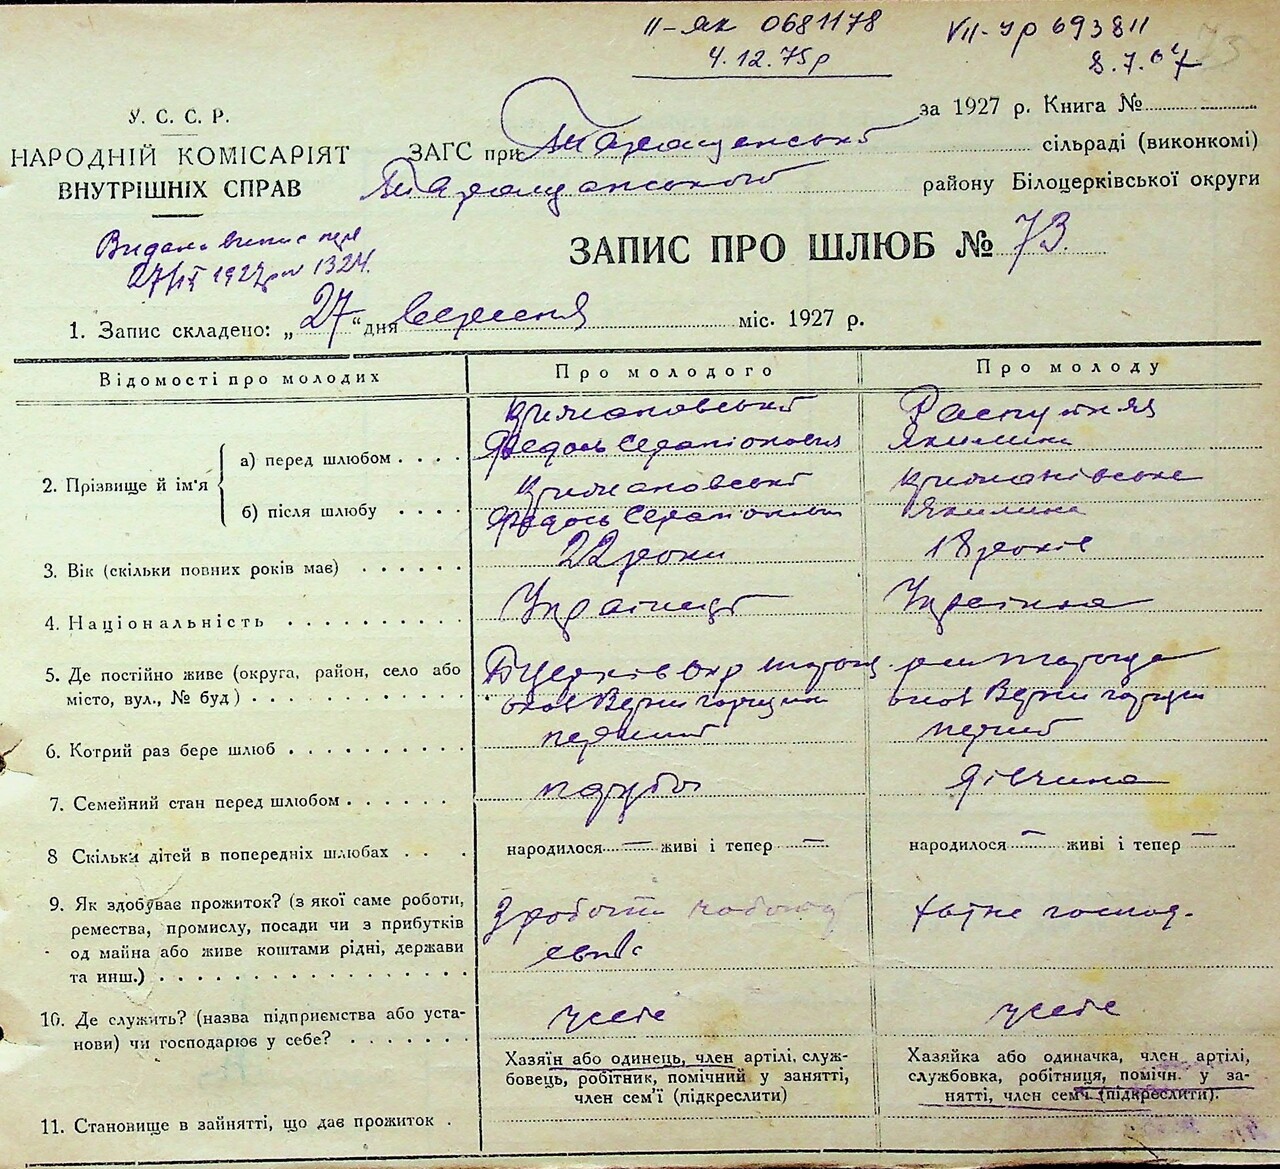 ІІ-ЯК 0681178
4.12.75р
VII-УР 693811
8.7.
73
У. С. С. Р.
НАРОДНІЙ КОМІСАРІЯТ
ВНУТРІШНІХ СПРАВ
за 1927 р. Книга №
ЗАГС при Таращанській сільраді (виконкомі)
Таращанського району Білоцерківської округи
Видана випис
27/ІХ 1927р № 1324.
ЗАПИС ПРО ШЛЮБ № 73.
1. Запис складено: „27“ дня Вересня міс. 1927 р.
Відомості про молодих
Про молодого
Про молоду
2. Прізвище й ім'я
а) перед шлюбом
Федось
Распутняя
Якилина
б) після шлюбу
Федось
Якилина
3. Вік (скільки повних років має)
22 роки
18 років
4. Національність
Українець
Українка
5. Де постійно живе (округа, район, село або
місто, вул., № буд)
Б Церків окр
6. Котрий раз бере шлюб
перший
перший
7. Семейний стан перед шлюбом
парубок
дівчина
8 Скільки дітей в попередніх шлюбах
народилося — живі і тепер —
народилося — живі і тепер —
9. Як здобуває прожиток? (з якої саме роботи,
ремества, промислу, посади чи з прибутків
од майна або живе коштами рідні, держави
та инш.)
З роботи
хатне господ.
10. Де служить? (назва підприємства або уста-
нови) чи господарює у себе?
у себе
у себе
11. Становище в зайнятті, що дає прожиток
Хазяїн або одинець, член артілі, служ-
бовець, робітник, помічний у занятті,
член сем'ї (підкреслити)
Хазяйка або одиначка, член артілі,
службовка, робітниця, помічн. у за-
нятті, член сем'ї (підкреслити).